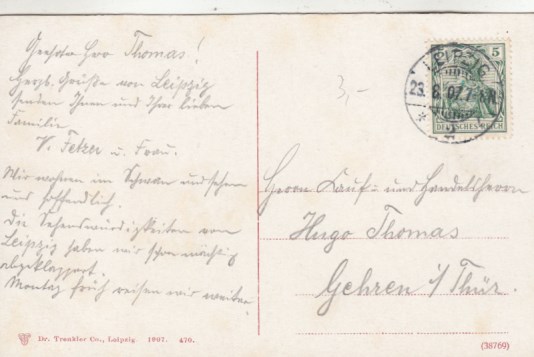 Geehrter Herr Thomas!
Herzl. Grüße von Leipzig
senden Ihnen und Ihrer lieben
Familie
V. Fetzer u. Frau.
Wir wohnen im Schwan und sehen
uns
Die Sehenswürdigkeiten von
Leipzig haben wir schon mächtig
abgeklappert.
Montag früh reisen wir weiter.
3,-
LEIPZIG
23.8.07
5
DEUTSCHES REICH
Herrn Kauf- und Handelsherrn
Hugo Thomas
Gehren i/Thür.
Dr. Trenkler Co., Leipzig. 1907. 470.
(38769)